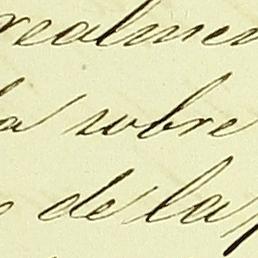 realmen
la sobre
de la